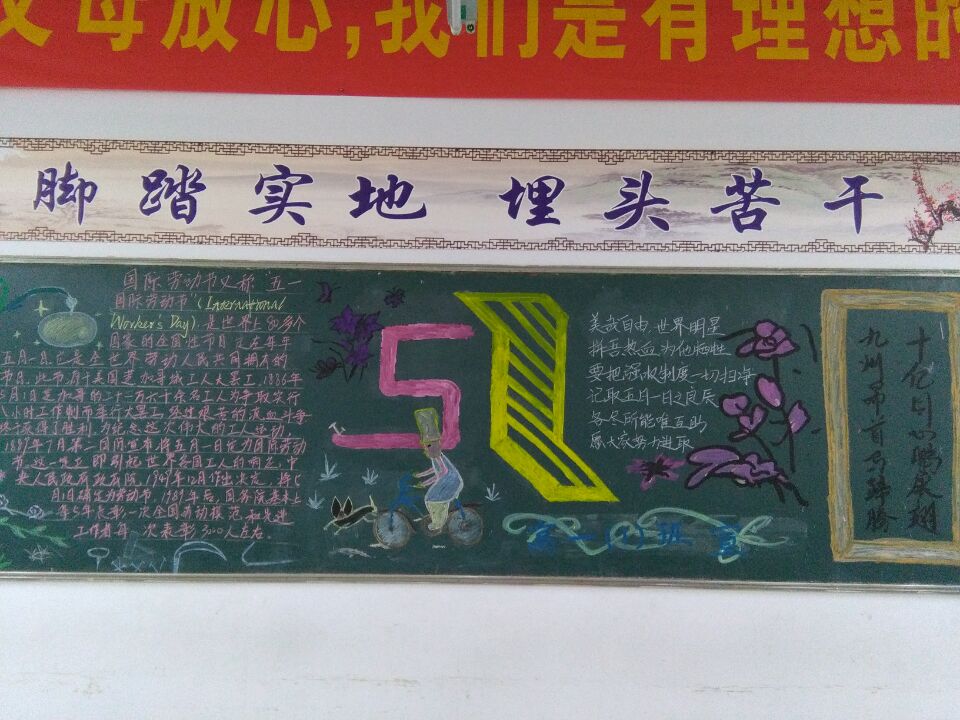 父母放心,我们是有理想的
脚踏实地 埋头苦干
国际劳动节又称"五一
国际劳动节"(International
Worker's Day).是世界上80多个
国家的全国性节日.定在每年
五月一日.它是全世界劳动人民共同拥有的
节日.此节源于美国芝加哥城工人大罢工,1886年
5月1日芝加哥的二十一万六千余名工人为争取实行
八小时工作制而举行大罢工,经过艰苦的流血斗争
终于获得了胜利,为纪念这次伟大的工人运动,
1889年7月第二国际宣布将五月一日定为国际劳动
节.这一决定即刻引起世界各国工人的响应.中
央人民政府政务院,1949年12月作出决定,将5
月1日确定为劳动节.1989年后,国务院基本上
每5年表彰一次全国劳动模范和先进
工作者每一次表彰3000人左右.
51
美哉自由,世界明星
拼吾热血为他牺牲
要把强权制度一切扫净
记取五月一日之良辰
各尽所能唯互助
愿大家努力进取
高一(1)班 宣
十亿同心鹏展翅
九州昂首马蹄腾